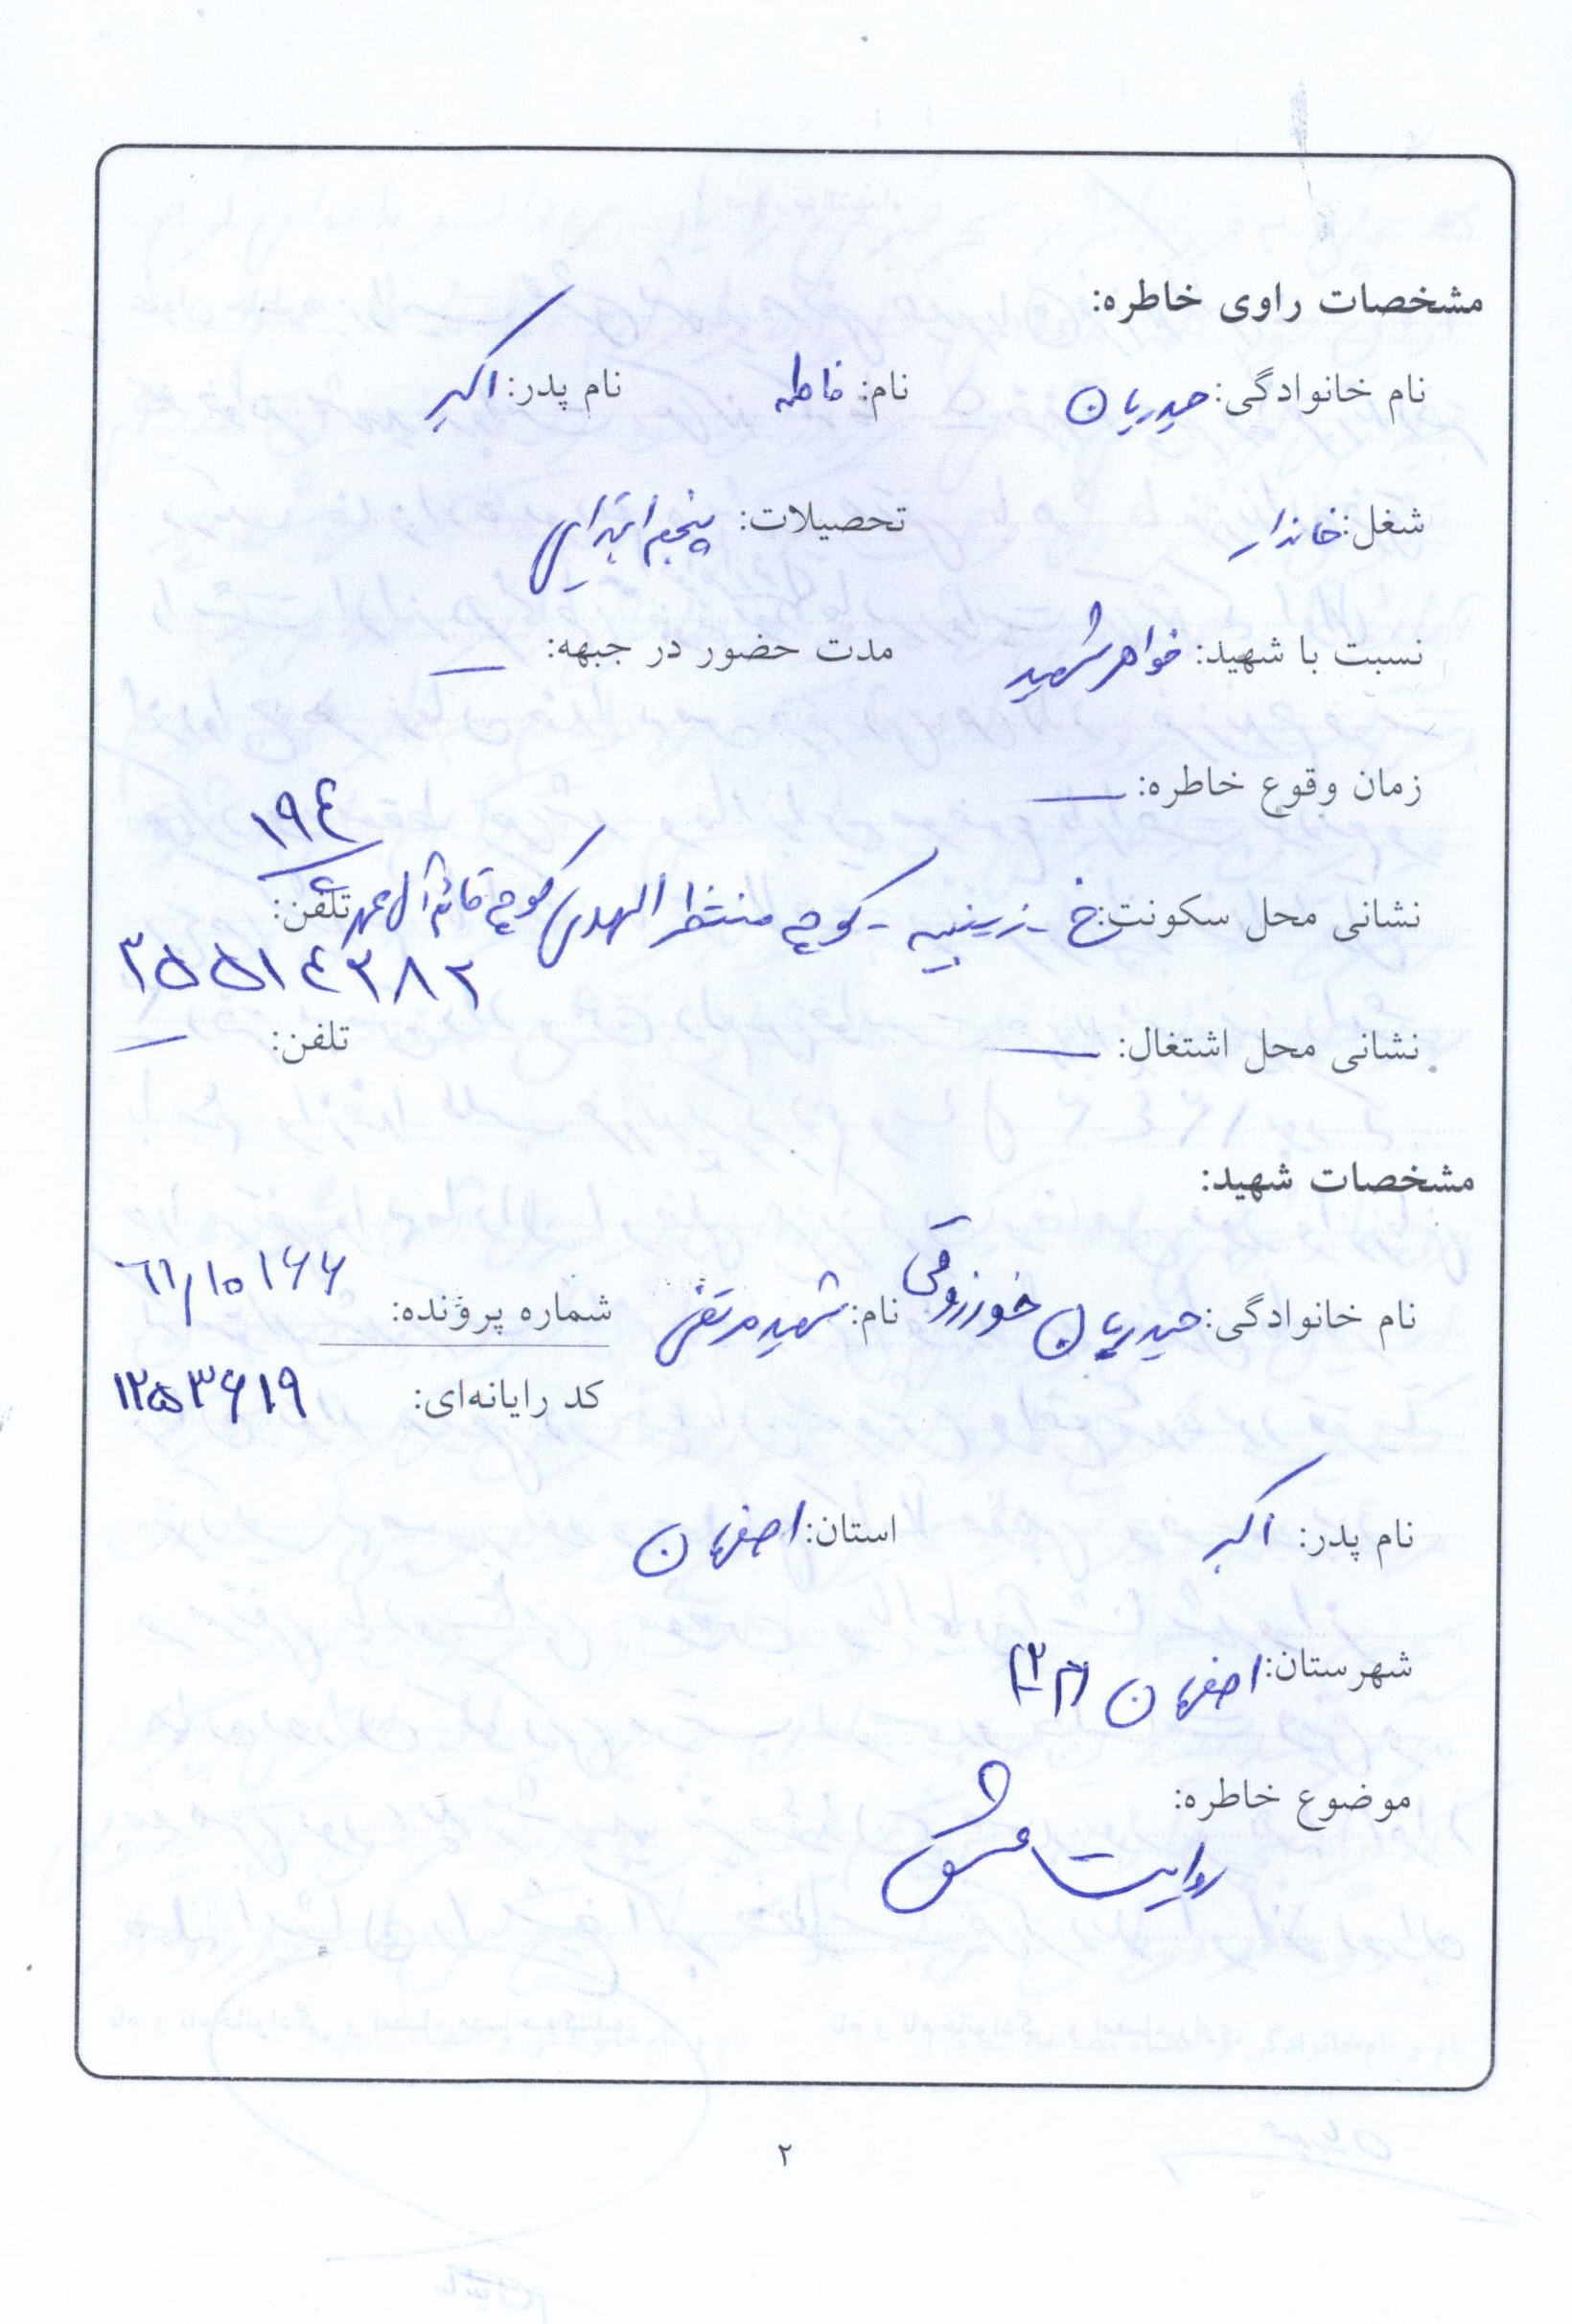 مشخصات راوی خاطره:
نام خانوادگی: حیدریان نام: فاطمه نام پدر: اکبر
شغل: خانه‌دار تحصیلات: پنجم ابتدایی
نسبت با شهید: خواهر شهید مدت حضور در جبهه: —
زمان وقوع خاطره: —
۱۹۴
نشانی محل سکونت: خ - زینبیه - کوچه منتظر المهدی کوچه قائم آل محمد تلفن:
۳۵۵۱۴۳۸۲
نشانی محل اشتغال: — تلفن: —
مشخصات شهید:
نام خانوادگی: حیدریان خوزروقی نام: شهید مرتضی شماره پرونده: ۶۱/۱۰۱۶۶
کد رایانه‌ای: ۱۲۵۳۶۱۹
نام پدر: اکبر استان: اصفهان
شهرستان: اصفهان
موضوع خاطره:
روایت عشق
۲